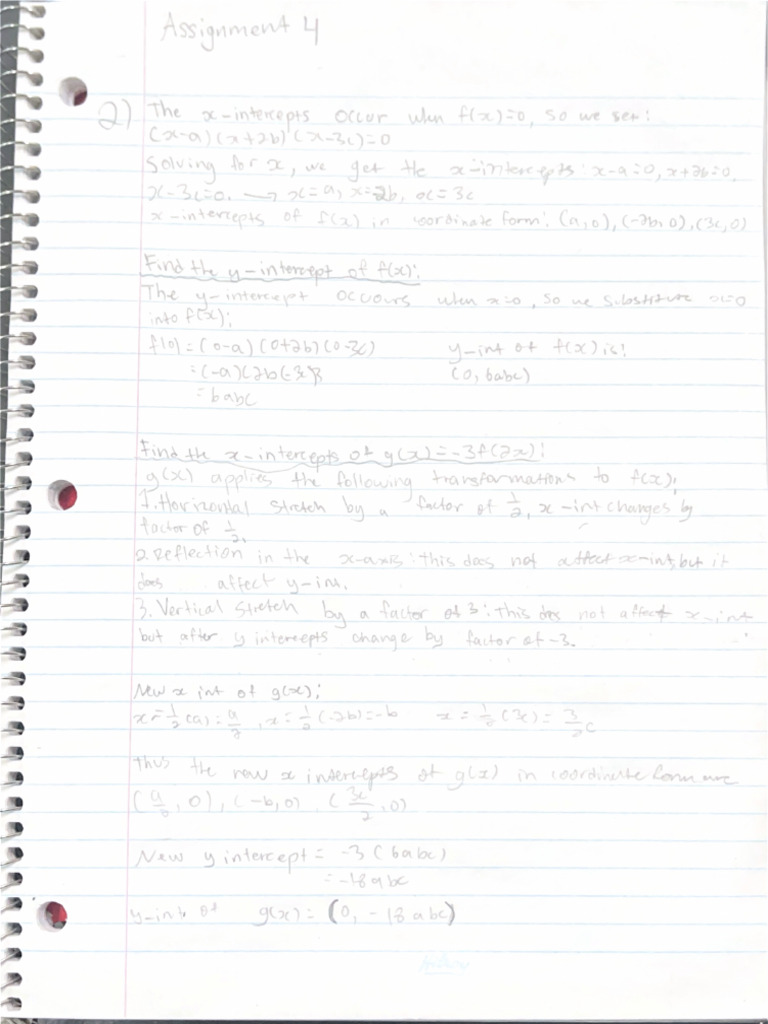 Assignment 4
2) The x-intercepts occur when f(x)=0, so we set:
(x-a)(x+2b)(x-3c)=0
Solving for x, we get the x-intercepts: x-a=0, x+2b=0,
x-3c=0. → x=a, x=-2b, x=3c
x-intercepts of f(x) in coordinate form: (a,0), (-2b,0), (3c,0)
Find the y-intercept of f(x):
The y-intercept occours when x=0, so we substitute x=0
into f(x):
f(0) = (0-a)(0+2b)(0-3c) y-int of f(x) is:
=(-a)(2b)(-3c) (0, 6abc)
= 6abc
Find the x-intercepts of g(x)=-3f(2x):
g(x) applies the following transformations to f(x):
1. Horizontal stretch by a factor of 1/2, x-int changes by
factor of 1/2.
2. Reflection in the x-axis: This does not affect x-int, but it
does affect y-int.
3. Vertical stretch by a factor of 3: This does not affect x-int
but after y intercepts change by factor of -3.
New x int of g(x):
x=1/2(a)=a/2, x=1/2(-2b)=-b x=1/2(3c)=3/2c
Thus the new x intercepts of g(x) in coordinate form are
(a/2, 0), (-b,0), (3c/2, 0)
New y intercept = -3(6abc)
= -18abc
y-int of g(x) = (0, -18abc)